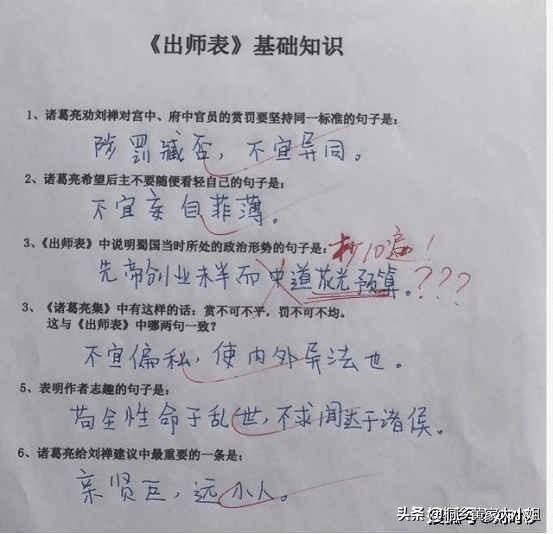 《出师表》基础知识
1、诸葛亮劝刘禅对宫中、府中官员的赏罚要坚持同一标准的句子是:
陟罚臧否，不宜异同。
2、诸葛亮希望后主不要随便看轻自己的句子是:
不宜妄自菲薄。
3、《出师表》中说明蜀国当时所处的政治形势的句子是:
抄10遍！
先帝创业未半而中道花光预算。???
3、《诸葛亮集》中有这样的话：赏不可不平，罚不可不均。
这与《出师表》中哪两句一致？
不宜偏私，使内外异法也。
5、表明作者志趣的句子是:
苟全性命于乱世，不求闻达于诸侯。
6、诸葛亮给刘禅建议中最重要的一条是:
亲贤臣，远小人。
头条 @桐乡黄家大小姐